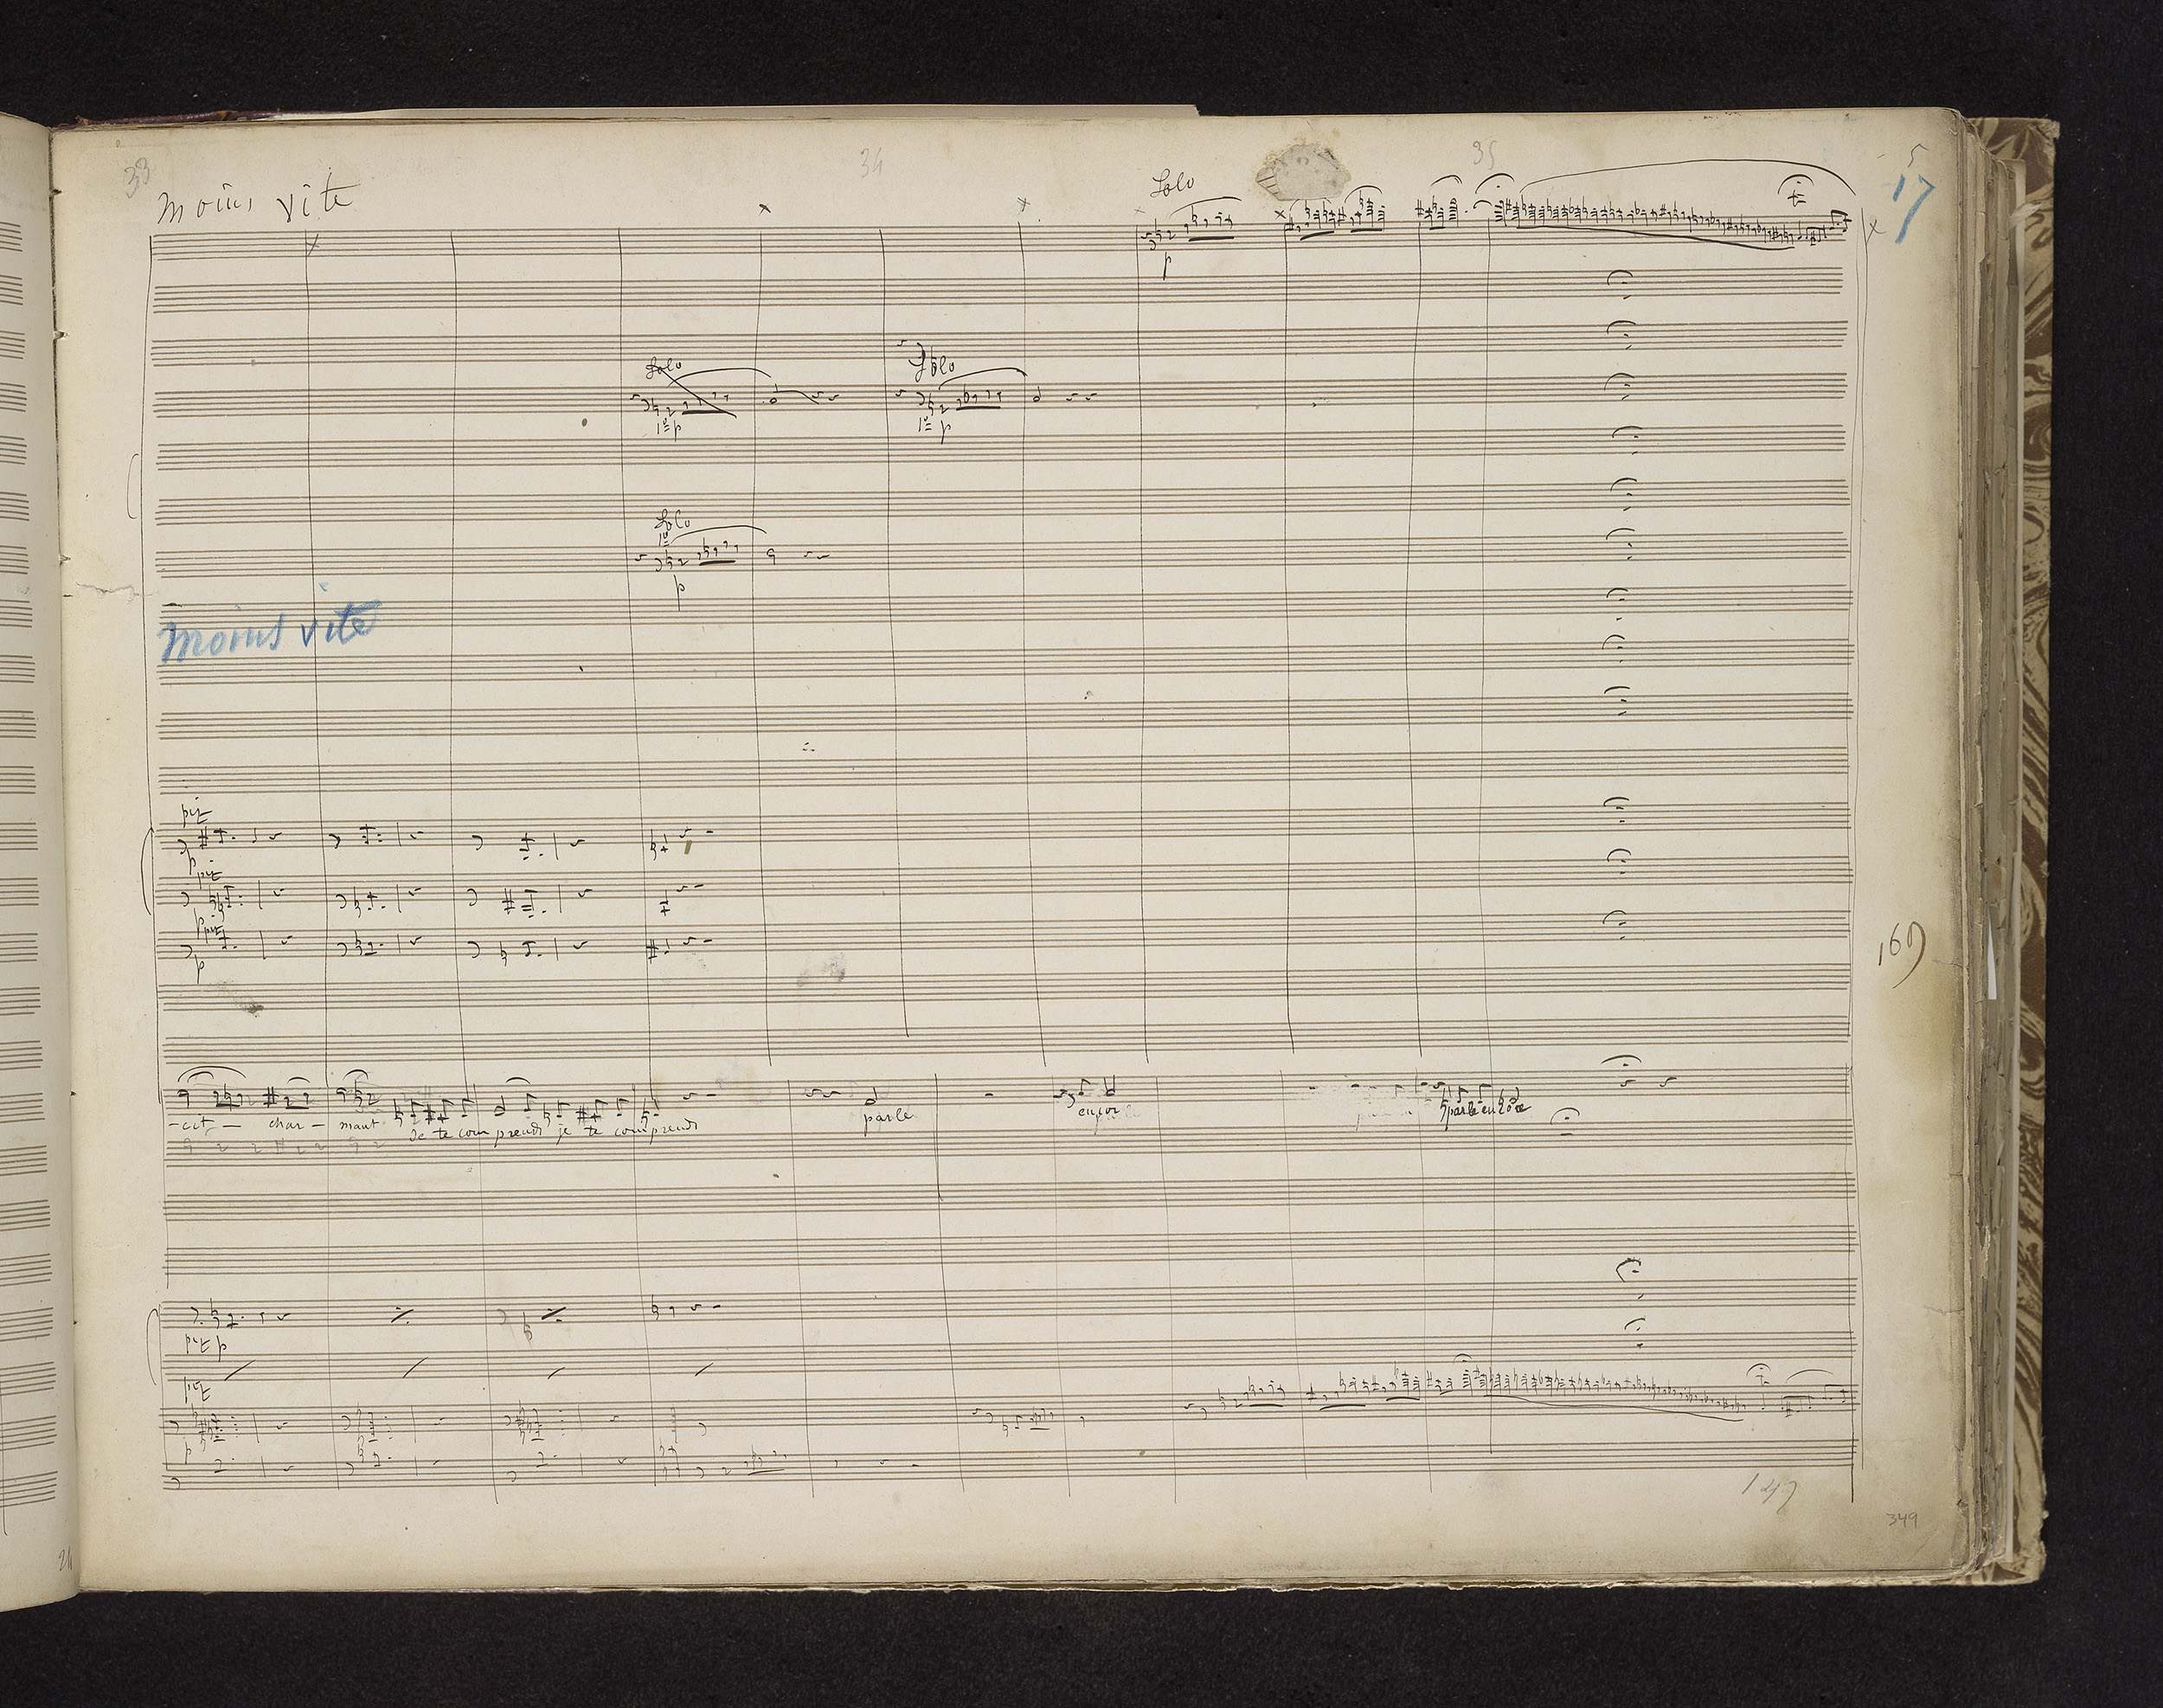 33 34 35 5
17
moins vite
Solo
Solo
Solo
1º p
1º p
p
Solo
1º
p
moins vite
piz
p
piz
p
piz
p
169
-cit, - char - mant Je te com prends je te comprends parle encor parle encore
piz p
piz
p
147
349
24